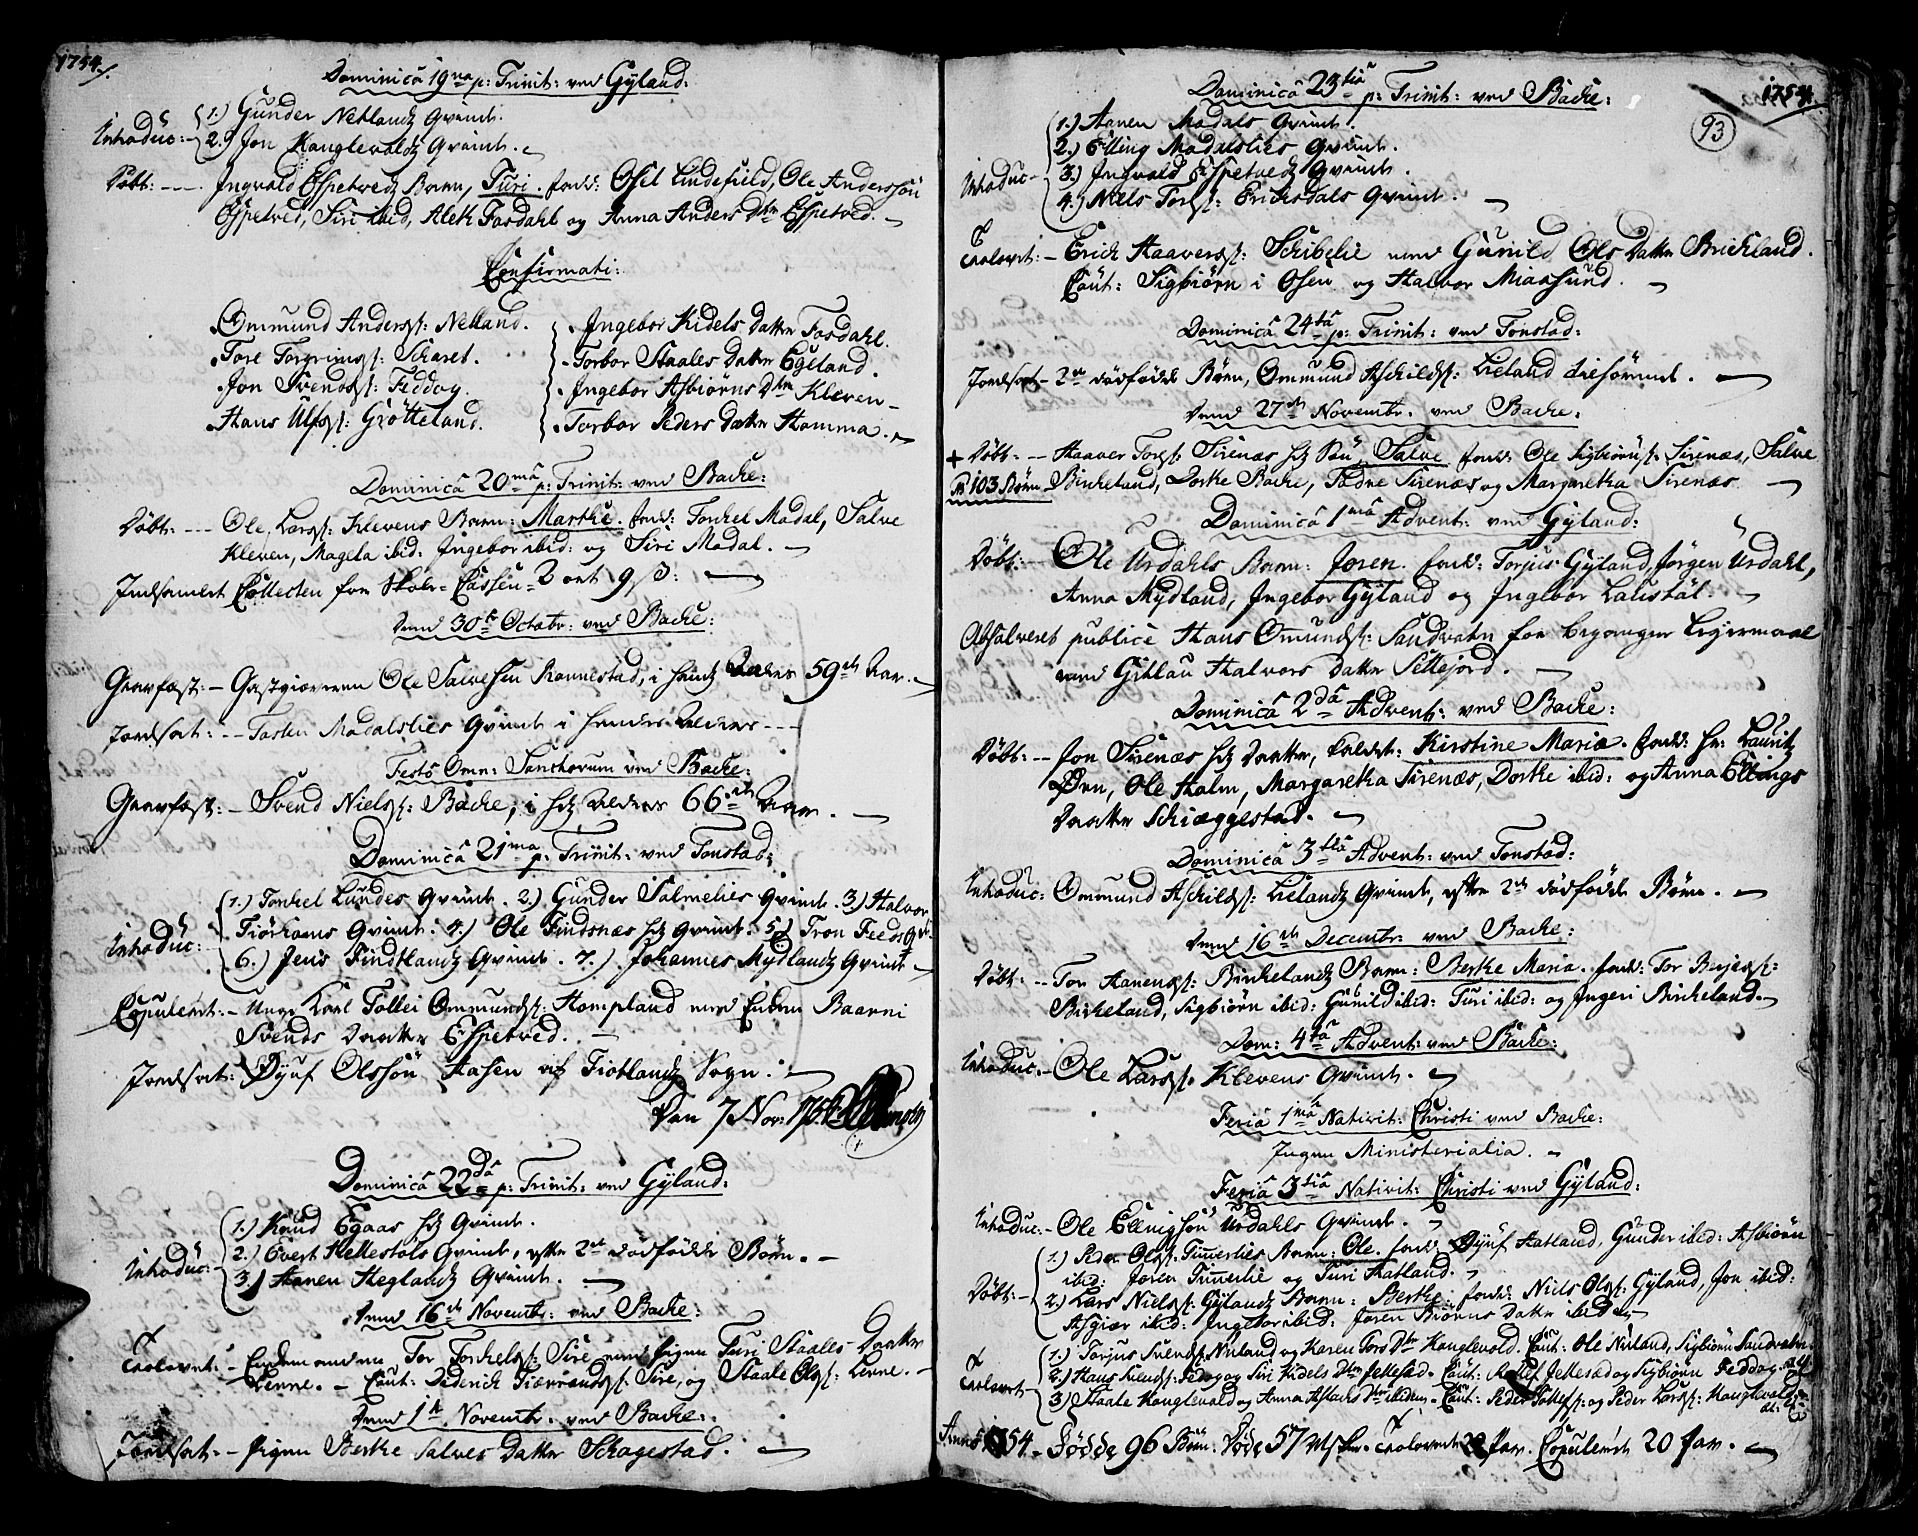 1754.
Dominicâ 19na p: Trinit: ved Gÿland:
Introduc:
1.) Gunder Netlandz Qvinde.
2.) Jon Hauglevoldz Qvinde.
Døbt: --- Ingvald Espetvedz Barn, Turi. fadd: Osil Lindefield, Ole Anderssøn
Espetved, Siri ibid, Aleth Fosdahl og Anna Anders Dttr Espetved.
Confirmati:
Ommund Anderss: Netland.
Tore Torgrims: Skaret.
Jon Svends: Feddog.
Hans Ulfs: Grøtteland.
Ingebor Kidels Datter Fosdahl.
Torbor Staales Datter Egeland.
Ingebor Asbiørns Dttr Kleven
Torbor Peders Datter Homma.
Dominicâ 20mâ p: Trinit: ved Backe:
Døbt: --- Ole Lars: Klevens Barn: Marthe. fadd: Tonkel Modal, Salve
Kleven, Magela ibid: Ingebor ibid: og Siri Modal.
Indsamlet Collecten for Skole-Cassen 2 ort 9 ß:
Dend 30te Octobr: ved Backe:
Gravfæst: - Gastgiæveren Ole Salvesen Rannestad, i hans Alders 59de Aar.
Jordsat: -- Tosten Modalslies Qvinde i hendes Alders ---
Festo Omn: Sanctorum ved Backe:
Gravfæst: - Svend Niels: Backe, i hs Alders 66de Aar.
Dominicâ 21ma p: Trinit: ved Tonstad:
Introduc:
1.) Tonkel Lundes Qvinde. 2.) Gunder Salmelies Qvinde. 3.) Halvor
Fiørhoms Qvinde. 4.) Ole Findsnæs hs Qvinde. 5.) Tron Feeds Qv:
6.) Jens Findtlandz Qvinde. 7.) Johannes Mÿdlandz Qvinde
Copuleret: - Unge Karl Tollei Ommunds: Hompland med Enken Baarni
Svends Datter Espetved.
Jordsat: Dÿuf Olssøn Aasen af Fiotlandz Sogn.
Den 7 Nov:
Dominicâ 22dâ p: Trinit: ved Gÿland:
Introduc:
1.) Knud Egaas hs Qvinde.
2.) Evert Hellestøls Qvinde, efter 2de dødfødde Børn.
3.) Aanen Heglandz Qvinde.
Dend 16de Novembr: ved Backe:
Trolovet: - Enkemanden Tor Tonkels: Sire med Pigen Turi Staales Datter
Lenne. - Caut: Dederick Tiørrands: Sire, og Staale Ols: Lenne.
Novembr: ved Backe:
Jordsat: - Pigen Berthe Salves Datter Skagestad.
Dominicâ 23tiâ p: Trinit: ved Backe:
1754.
93
Introduc:
1.) Aanen Modals Qvinde.
2.) Elling Modalslies Qvinde.
3.) Ingvald Espetvedz Qvinde.
4.) Niels Tors: Ericksdals Qvinde.
Trolovet: - Erick Haavers: Schibelie med Gunild Ols Datter Brickland.
Caut: Sigbiørn i Osen og Halvor Miassund.
Dominicâ 24tâ p: Trinit: ved Tonstad:
Jordsat - 2de dødfødde Børn, Ommund Aschilds: Lieland tilhørende.
Dend 27de Novembr: ved Backe:
+ Døbt: -- Haaver Tors: Sirenæs hs Søn, Salve fadd: Ole Sigbiørns: Sirenæs, Salve
N 103 Børn - Birkeland, Dorthe Backe, Sirenæs og Margaretha Sirenæs
Dominicâ 1mâ Advent: ved Gÿland:
Døbt: - Ole Urdahls Barn: Joren. fadd: Torjus Gÿland, Jørgen Urdahl,
Anna Mÿdland, Ingebor Gÿland og Ingebor Laustøl.
Absolveret publicè Hans Omunds: Sandvatn for begangen Leiermaal
med Gitlau Halvors Datter Sellejord.
Dominicâ 2dâ Advent: ved Backe:
Døbt: -- Jon Sirenæs hs Datter, kaldet: Kirstine Maria. fadd: Hr: Lauritz
Øen, Ole Halm, Margaretha Sirenæs, Dorthe ibid: og Anna Ellings
Datter Schiæggestad.
Dominicâ 3tiâ Advent: ved Tonstad:
Introduc: Ommund Aschilds: Lielandz Qvinde, efter 2de dødfødde Børn.
Dend 16de Decembr: ved Backe:
Døbt: -- Tor Aanens: Birkelandz Barn: Berthe Maria. fadd: Tor Beries:
Birkeland, Sigbiørn ibid: Gunild ibid: Turi ibid: og Ingeri Birkeland.
Dom: 4tâ Advent: ved Backe:
Introduc: - Ole Lars: Klevens Qvinde.
Feriâ 1mâ Nativit: Christi ved Backe:
Ingen Ministerialia.
Feriâ 3tiâ Nativit: Christi ved Gÿland:
Introduc: - Ole Ellingsøn Urdahls Qvinde.
Døbt:
1.) Peder Ols: Timmerlies Barn: Ole. fadd: Dÿuf Hatland, Gunder ibid: Asbiørn
ibid: Joren Timmerlie og Turi Hatland.
2.) Lars Niels: Gÿlandz Barn: Berthe. fadd: Niels Ols: Gÿland, Jon ibid:
Asgiær ibid: Ingebor ibid: Joren Biørns Datter ibidem
Trolovet
1.) Torjus Svends: Nuland og Karen Tors Dttr Houglevold. Caut: Ole Nuland, Sigbiørn Sandvatn.
2.) Hans Svends: Fedog og Siri Kidels Dttr Jettestad. Caut: Jettestad og Sigbiørn Feddog.
3.) Staale Houglevold og Anna Dttr ibidem. Caut: Peder Tollefs: og Peder Lars: Houglevold
Anno 1754. - Fødde 96 Børn: Døde 57 Msker. Trolovede 22 Par. Copulerede 20 Par.